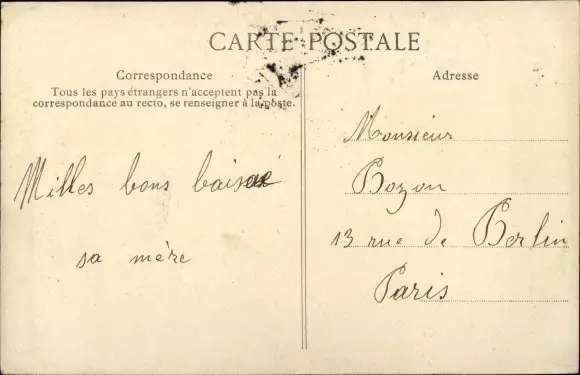 CARTE POSTALE
Correspondance
Tous les pays étrangers n'acceptent pas la
correspondance au recto, se renseigner à la poste.
Milles bons
sa mère
Adresse
Monsieur
Bozon
13 rue de Berlin
Paris